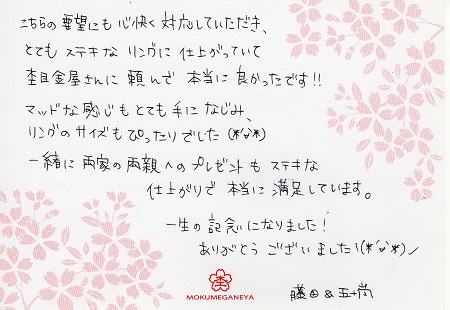 こちらの要望にも心快く対応していただき、
とても ステキな リングに 仕上がっていて
杢目金屋さんに 頼んで 本当に 良かったです!!
マッドな感じもとても手になじみ、
リングのサイズもぴったりでした(*^^*)
一緒に両家の両親へのプレゼントもステキな
仕上がりで本当に満足しています。
一生の記念になりました!
ありがとうございました!(*^^*)ノ
藤田&五十嵐
杢
MOKUMEGANEYA